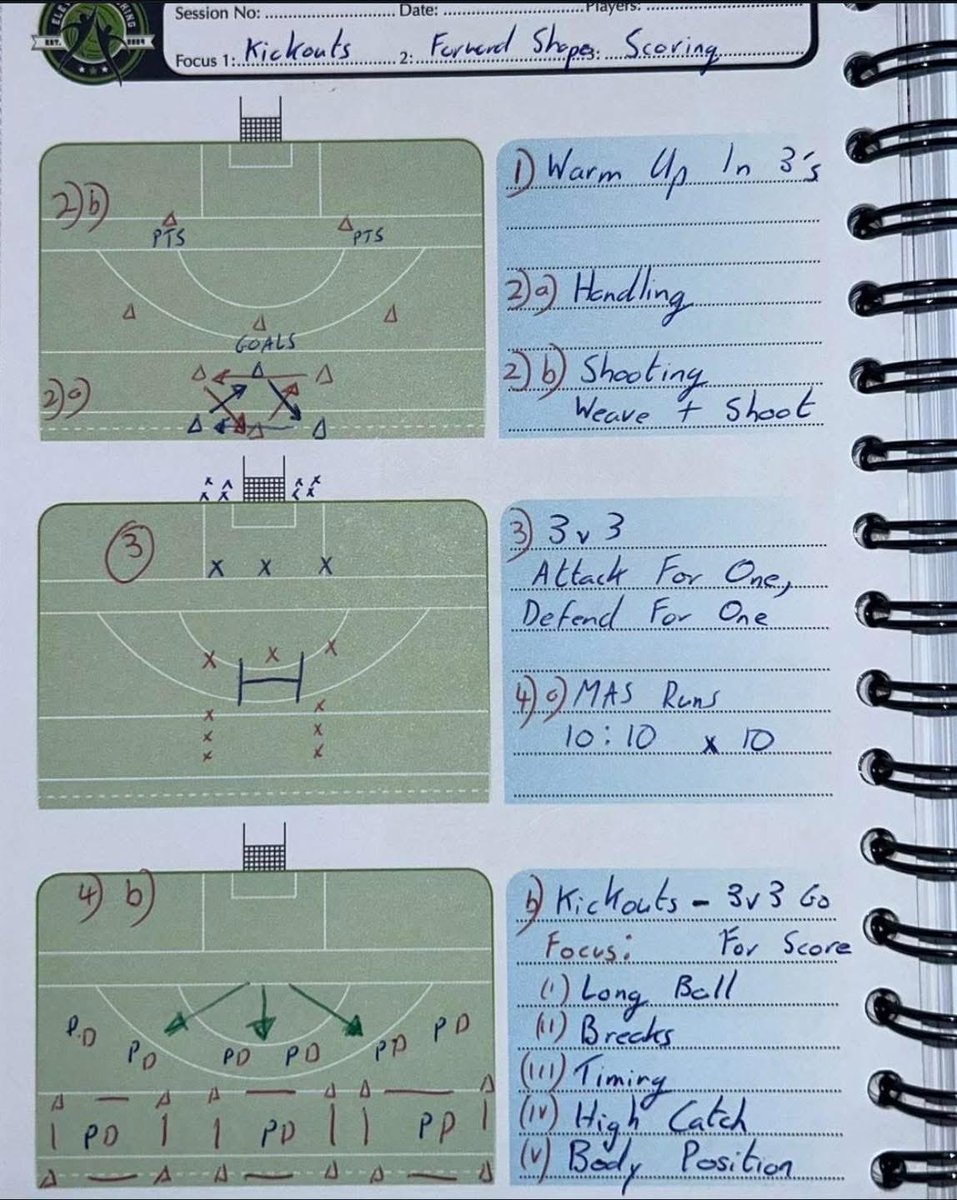 Session No: Date: Players:
Focus 1: Kickouts 2: Forward Shapes: Scoring
EST. 2004
2)b)
PTS PTS
GOALS
2)a)
1) Warm Up In 3's
2)a) Handling
2)b) Shooting
Weave + Shoot
3
x x x
x x x
x x
x x
x x
3) 3 v 3
Attack For One,
Defend For One
4) a) MAS Runs
10:10 x 10
4) b)
P D P D P D P D P D P D
P D P D P D
b) Kickouts - 3v3 Go
Focus: For Score
(i) Long Ball
(ii) Breaks
(iii) Timing
(iv) High Catch
(v) Body Position